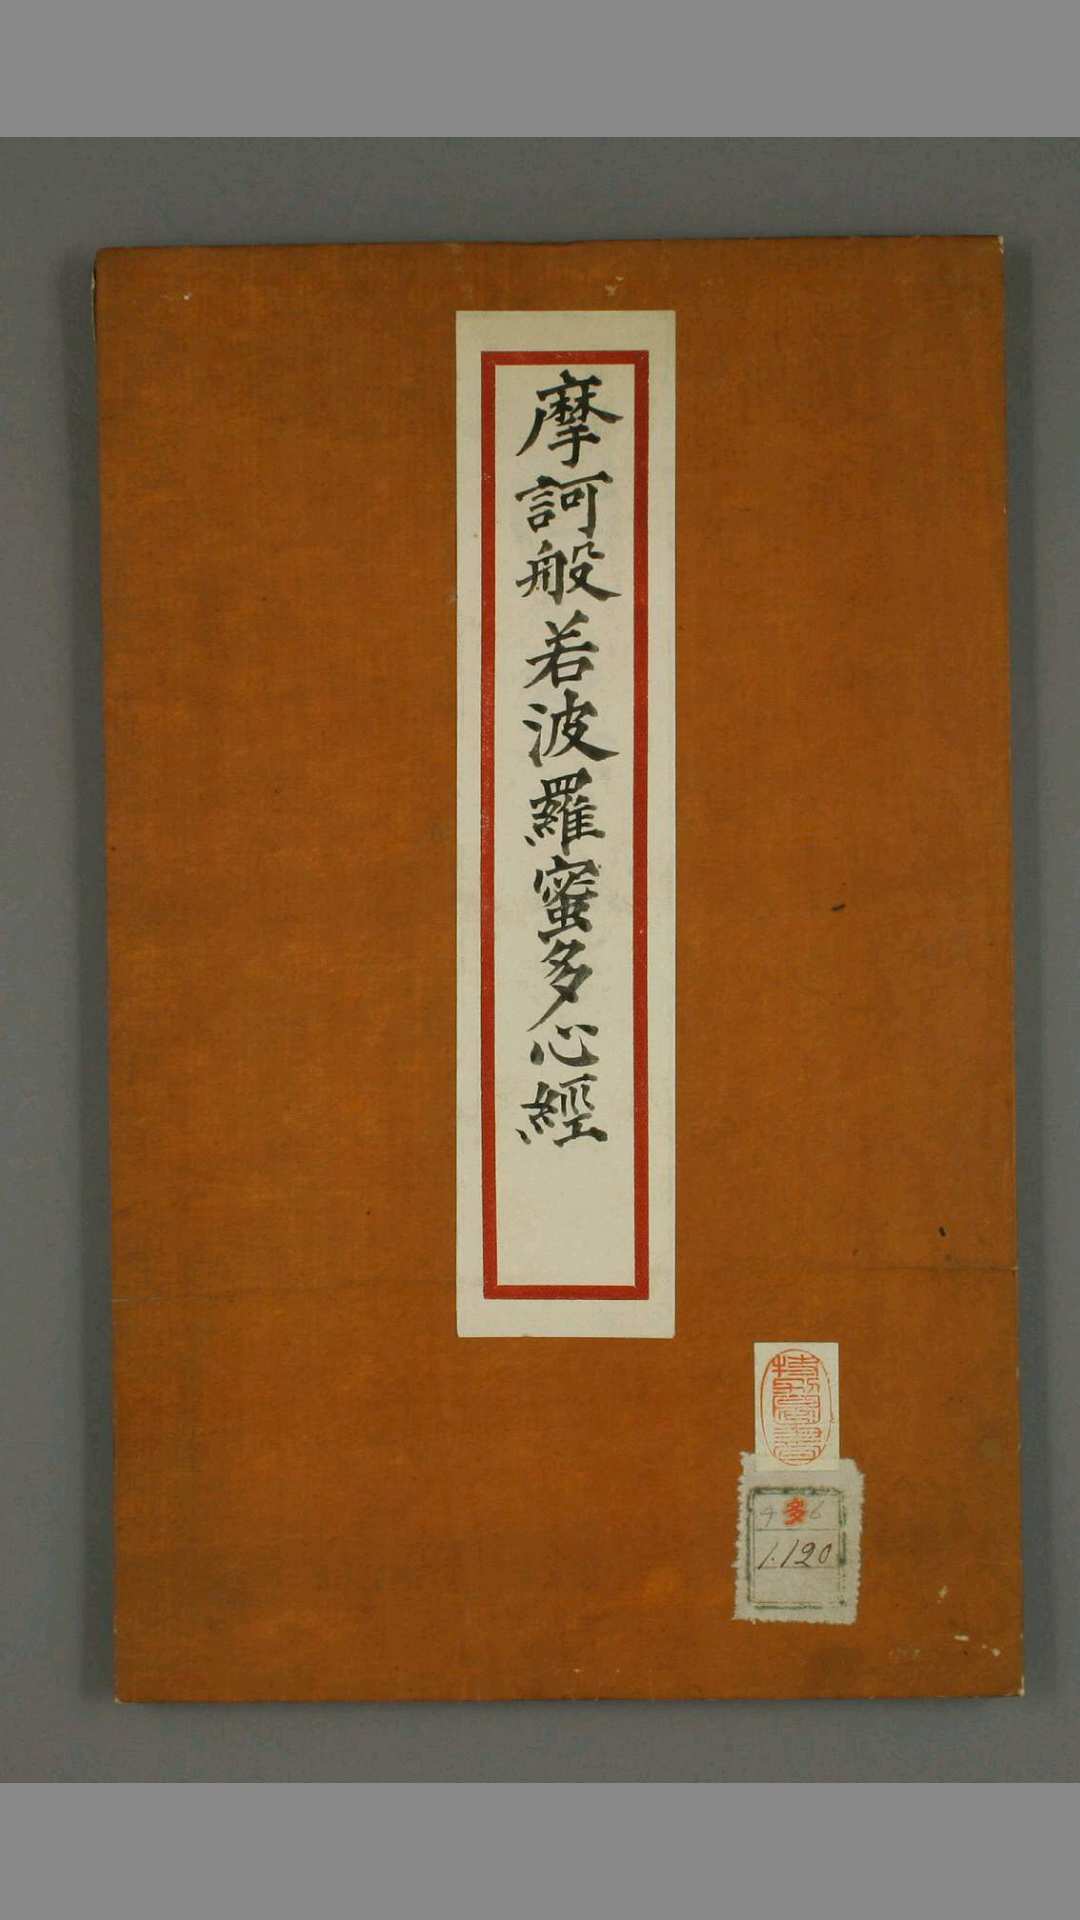 摩訶般若波羅蜜多心經
多
1.120